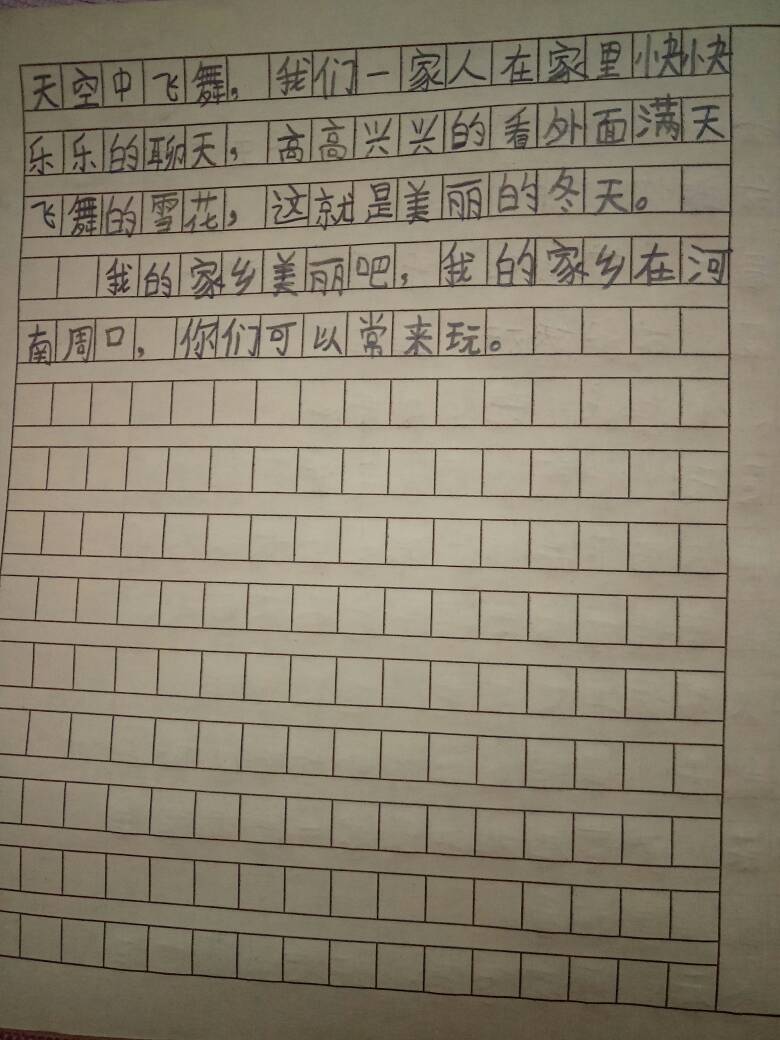 天空中飞舞，我们一家人在家里快快
乐乐的聊天，高高兴兴的看外面满天
飞舞的雪花，这就是美丽的冬天。
我的家乡美丽吧，我的家乡在河
南周口，你们可以常来玩。